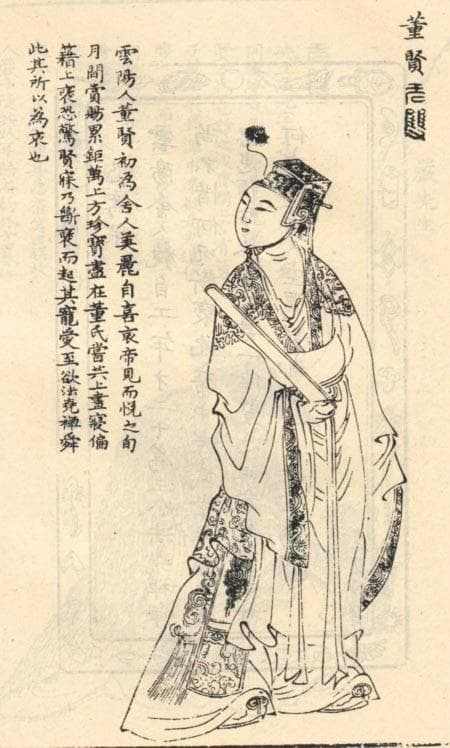 董賢
雲陽人董賢初為舍人美麗自喜哀帝見而悅之旬
月間賞賜累鉅萬上方珍寶盡在董氏嘗共上晝寢偏
籍上褎恐驚賢寐乃斷褎而起其寵愛至欲法堯禪舜
此其所以為哀也